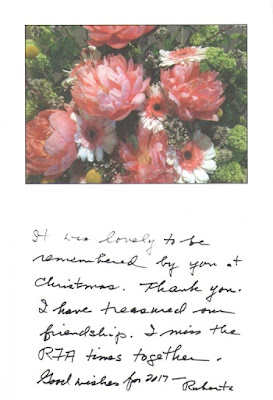 It was lovely to be
remembered by you at
Christmas. Thank you.
I have treasured our
friendship. I miss the
RFA times together.
Good wishes for 2017 —
Roberta